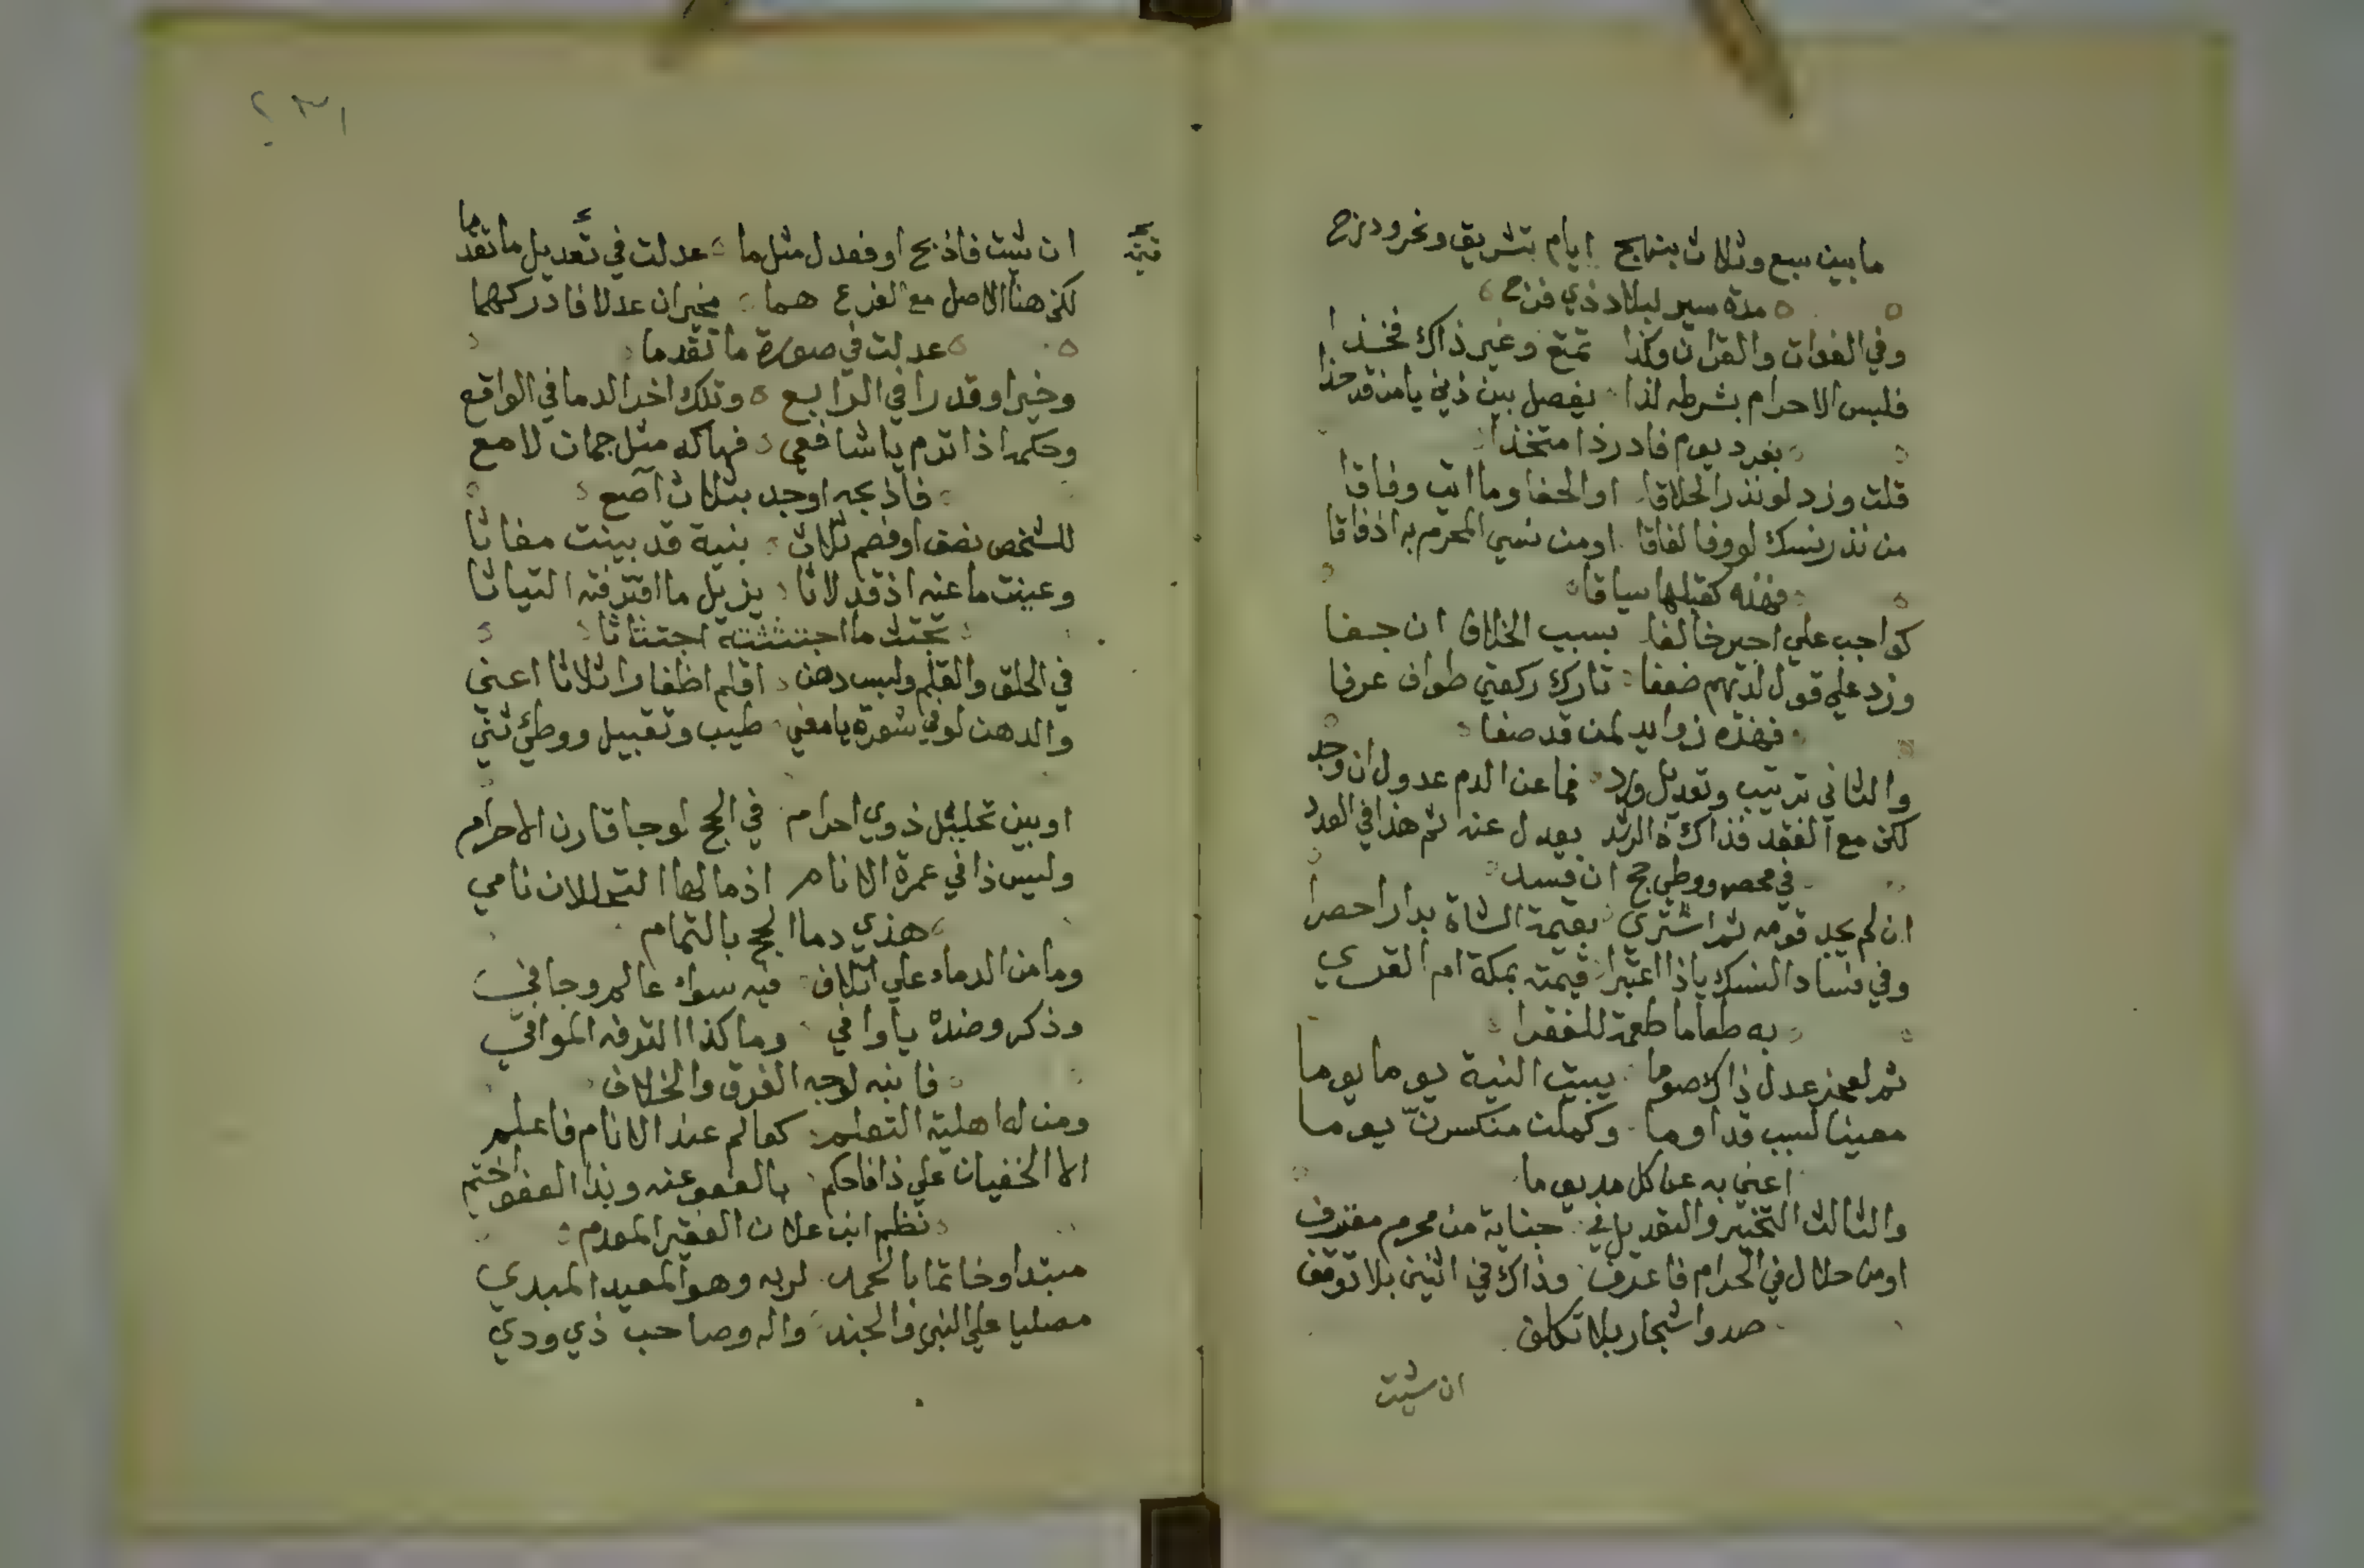 ما بين سبع وثلاث بنهج ايام تشريق ونحر ودرج
مدة سير لبلاد ذي فرج
وفي الفوات والقران وكذا تمتع وغير ذاك فخذا
فلبس الاحرام بشرطه لذا يفصل بين ذي يا من قد حذا
بفرد يوم فادر ذا متخذا
قلت وزد لو نذر الحلاقا او الحفا وما اتى وفاقا
من نذر نسك لو وفا لفاقا او من نسي المحرم به اذ فاقا
فهذه كقبلها سياقا
كواجب علي اجير خالفا بسبب الخلاف ان جفا
وزد علي قول لديهم ضعفا تارك ركعتي طواف عرفا
فهذه زوايد لمن قد صفا
والثاني ترتيب وتعديل ورد فما عن الدم عدول ان وجد
لكن مع الفقد فذاك ذا الرشد يعدل عنه ثم هذا في العدد
في محصر ووطي حج ان فسد
ان لم يجد قومه ثم اشترى بقيمة الشاة بدار احصرا
وفي فساد النسك ياذا اعتبرا قيمته بمكة ام القرى
به طعاما طعمة للفقرا
ثم لعجز عدل ذاك صوما يبيت النية يوما يوما
معينا لسبب قد اوما وكملت منكسرن يوما
اعني به عن كل مد يوما
والثالث التخيير والتعديل في جناية من محرم مقترف
او من حلال في الحرام فاعترف وذاك في اثنين بلا توقف
صد واشجار بلا تكلف
ان شيت
ان شيت فاذبح او فعدل مثل ما عدلت في تعديل ما تقدما
لكن هنا الاصل مع الفرع هما مخيران عدلا فادركهما
عدلت في صورة ما تقدما
وخيرا وقدرا في الرابع وتلك اخر الدما في الواقع
وحكمه اذا ترم يا شافعي فهاكه مثل جمان لامع
فاذبحه او جد بثلاث آصع
للشخص نصف او فصم ثلاث بنية قد بينت مغاثا
وعينت ما عنه اذ قد لاثا يزيل ما اقترفته التياثا
تجتث ما اجتثثته اجتثاثا
في الحلق والقلم ولبس دهن اقلم اظفارا ثلاثا اعني
والدهن لو في شعرة يا مغني طيب وتقبيل ووطئ ثني
او بين تحليل ذوي احرام في الحج لو جا قارن الاحرام
وليس ذا في عمرة الانام اذ ما لها التحللان نامي
هذي دما الحج بالتمام
وما من الدماء علي اتلاف فيه سواء عالم وجافي
وذكر وضده يا وافي وما كذا الترفه الموافي
فانبه لوجه الفرق والخلاف
ومن له اهلية التعلم كعالم عند الانام فاعلم
الا الخفيات علي ذا فاحكم بالعفو عنه وبذا العفو اختم
نظم ابن علان الفقير المعدم
مبتدا وخاتما بالحمد لربه وهو المعيد المبدي
مصليا علي النبي والجند واله وصاحب ذي ودي